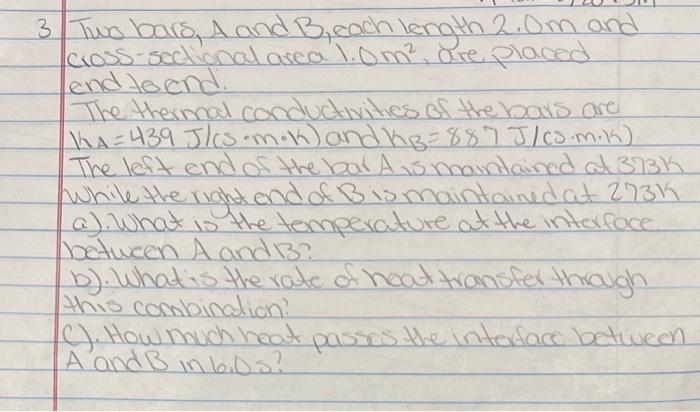 3 Two bars, A and B, each length 2.0m and
cross-sectional area 1.0m², are placed
end to end.
The thermal conductivities of the bars are
kA=439 J/(s·m·k) and kB=887 J/(s.m.k)
The left end of the bar A is maintained at 373K
while the right end of B is maintained at 273K
a). What is the temperature at the interface
between A and B?
b). What is the rate of heat transfer through
this combination?
C). How much heat passes the interface between
A and B in 6.0s?